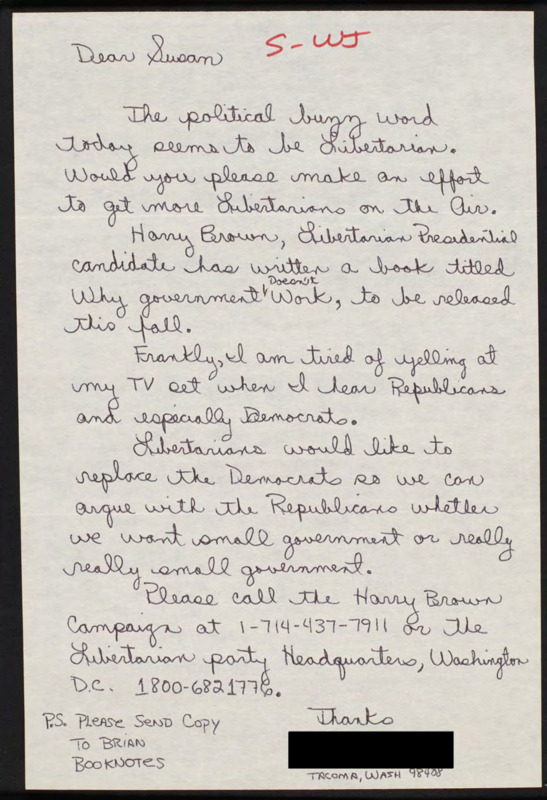 Dear Susan
S-WJ
The political buzz word
today seems to be Libertarian.
Would you please make an effort
to get more Libertarians on the Air.
Harry Brown, Libertarian Presidential
candidate has written a book titled
Doesn't
Why government Work, to be released
this fall.
Frankly, I am tired of yelling at
my TV set when I hear Republicans
and especially Democrats.
Libertarians would like to
replace the Democrats so we can
argue with the Republicans whether
we want small government or really
really small government.
Please call the Harry Brown
Campaign at 1-714-437-7911 or the
Libertarian party Headquarters, Washington
D.C. 1800-6821776.
Thanks
P.S. PLEASE SEND COPY
TO BRIAN
BOOKNOTES
TACOMA, WASH 98408